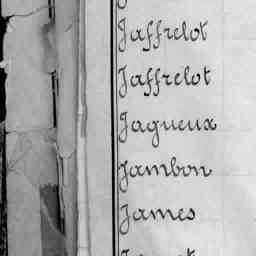 Jaffrelot
Jaffrelot
Jagueux
Jambon
James